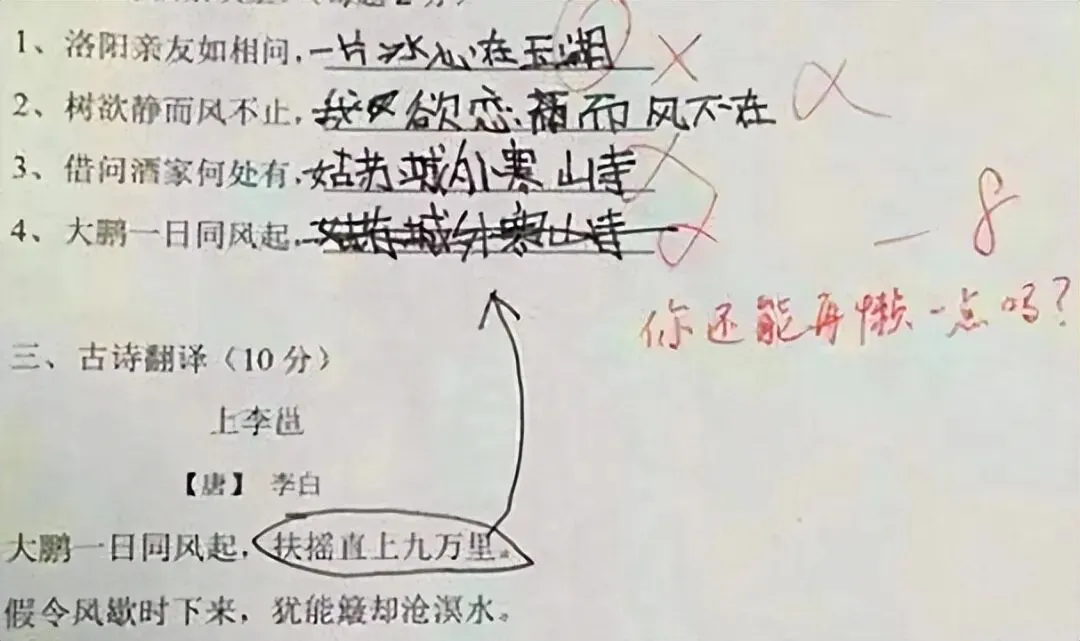 (每题2分)
1、洛阳亲友如相问,一片冰心在玉湖
2、树欲静而风不止,欲恋 而风不在
3、借问酒家何处有,姑苏城外寒山寺
4、大鹏一日同风起,姑苏城外寒山寺
-8
你还能再懒一点吗?
三、古诗翻译(10分)
上李邕
【唐】 李白
大鹏一日同风起,扶摇直上九万里。
假令风歇时下来,犹能簸却沧溟水。